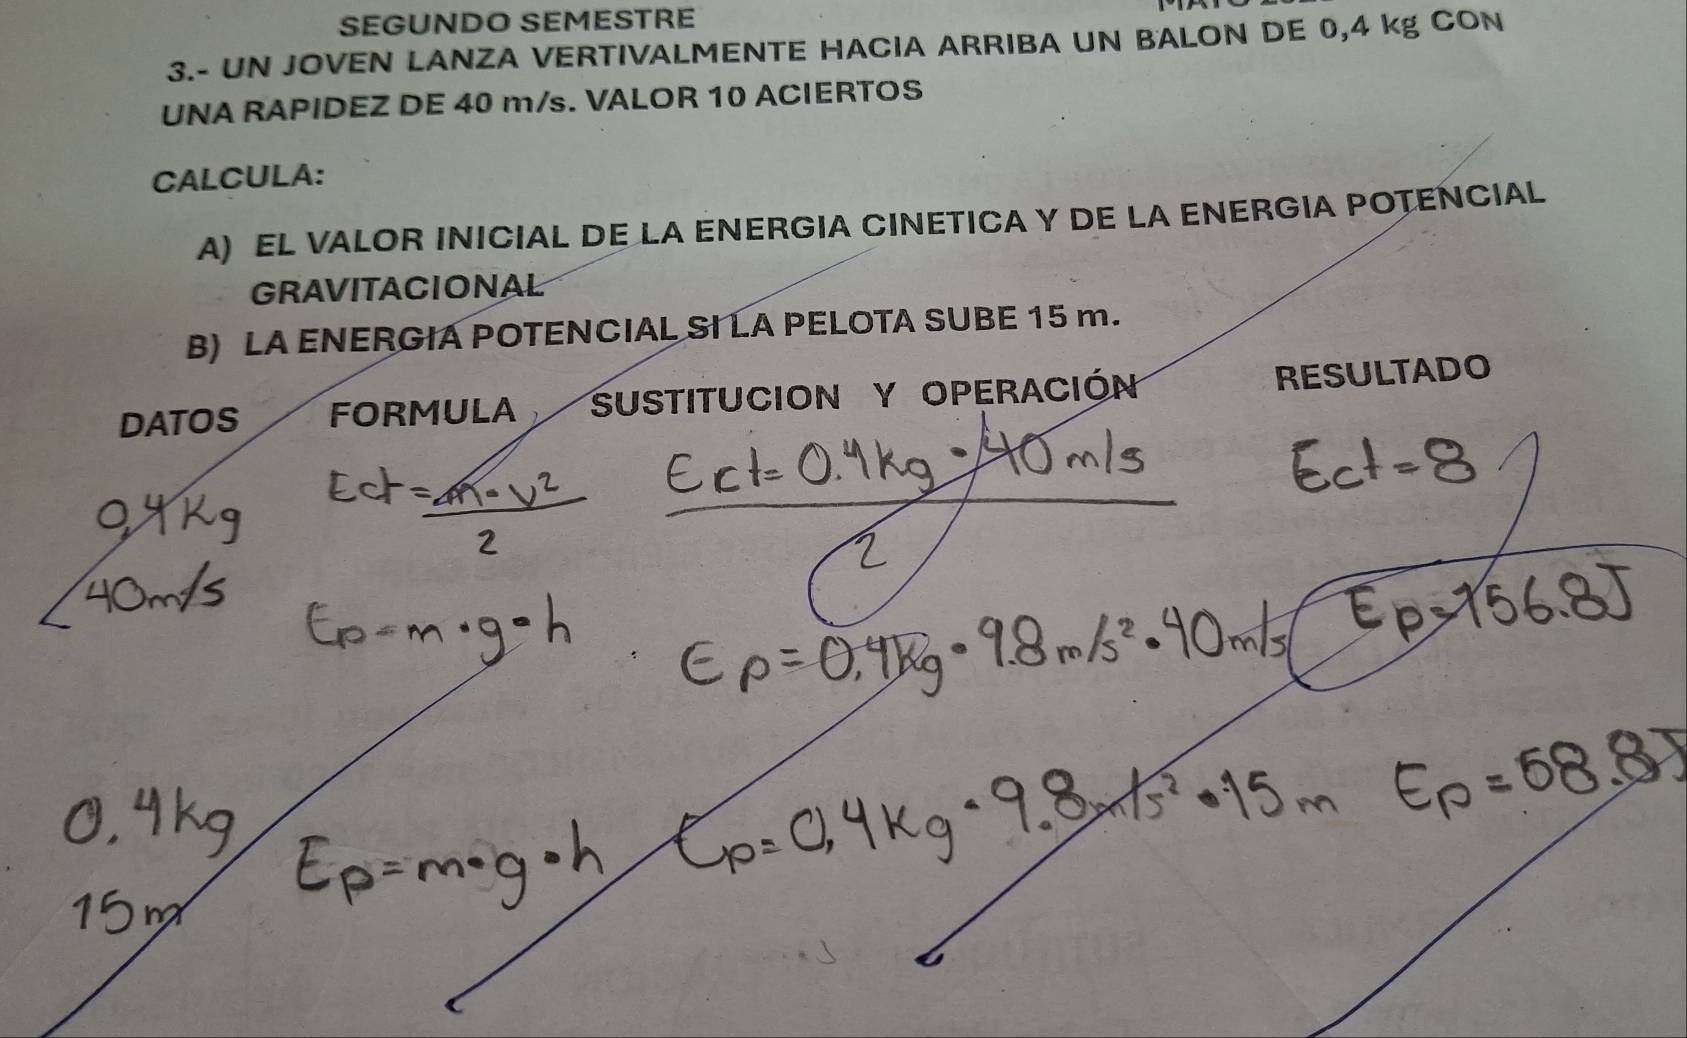 SEGUNDO SEMESTRE
3.- UN JOVEN LANZA VERTIVALMENTE HACIA ARRIBA UN BALON DE 0,4 kg CON
UNA RAPIDEZ DE 40 m/s. VALOR 10 ACIERTOS
CALCULA:
A) EL VALOR INICIAL DE LA ENERGIA CINETICA Y DE LA ENERGIA POTENCIAL
GRAVITACIONAL
B) LA ENERGIA POTENCIAL SI LA PELOTA SUBE 15 m.
DATOS FORMULA SUSTITUCION Y OPERACIÓN RESULTADO
0,4Kg Ect=m·v²/2 Ect=0.4kg·40m/s/2 Ect=8
40m/s Ep=m·g·h Ep=0,4Kg·9.8m/s²·40m/s Ep=156.8J
0.4kg Ep=m·g·h Ep=0,4Kg·9.8m/s²·15m Ep=58.8J
15m